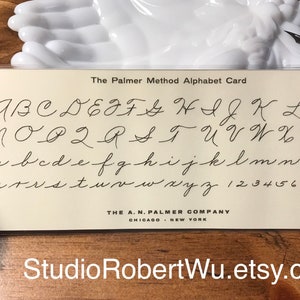 The Palmer Method Alphabet Card
A B C D E F G H I J K L
N O P Q R S T U V W X
a b c d e f g h i j k l m n
q r s t u v w x y z 1 2 3 4 5 6
THE A. N. PALMER COMPANY
CHICAGO - NEW YORK
StudioRobertWu.etsy.c